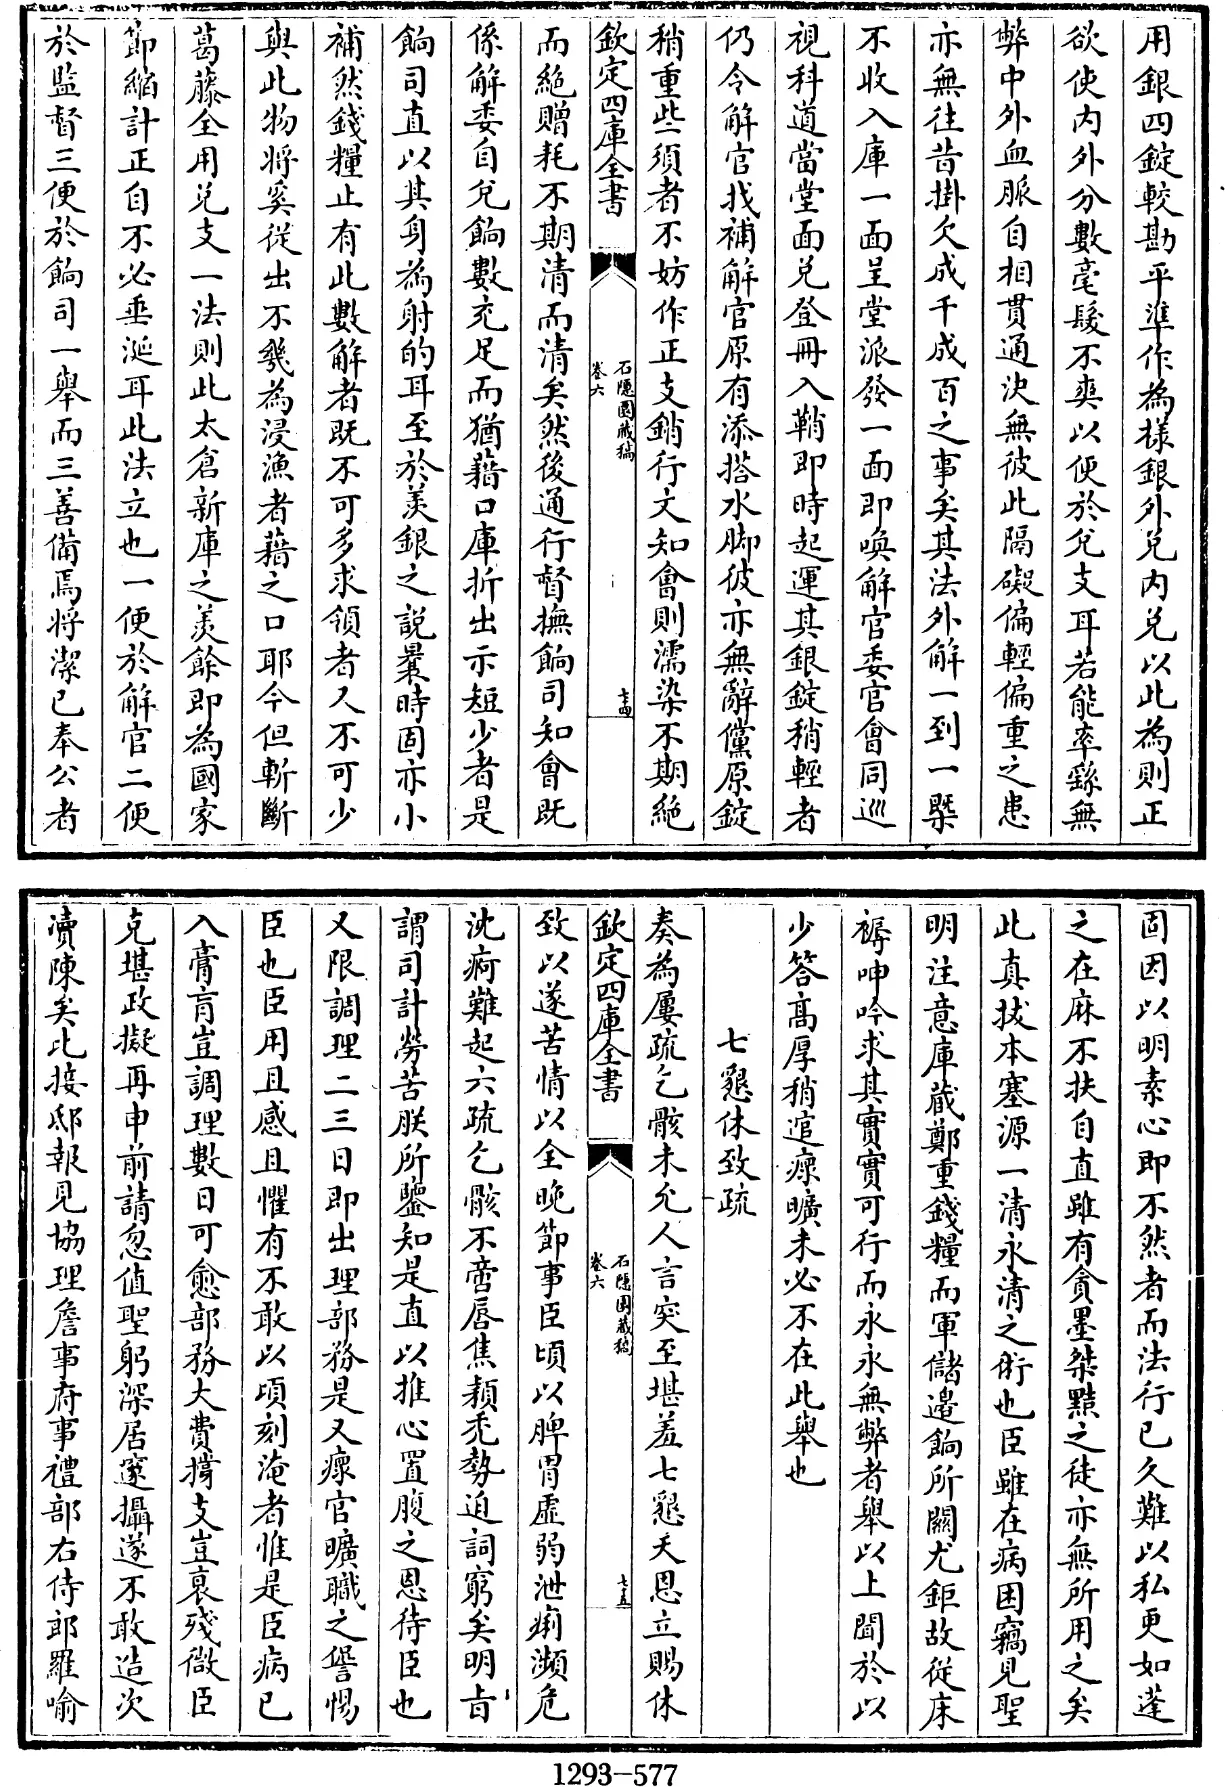 用銀四錠較勘平準作為樣銀外兑内兑以此為則正
欲使内外分數毫髮不爽以便於兑支耳若能率繇無
弊中外血脈自相貫通決無彼此隔礙偏輕偏重之患
亦無往昔掛欠成千成百之事矣其法外解一到一槩
不收入庫一面呈堂派發一面即喚解官委官會同巡
視科道當堂面兑登冊入鞘即時起運其銀錠稍輕者
仍令解官找補解官原有添搭水脚彼亦無辭儻原錠
稍重些須者不妨作正支銷行文知會則濡染不期絶
欽定四庫全書
石隠園蔵稿
卷六
七十四
而絶贈耗不期清而清矣然後通行督撫餉司知會既
係解委自兑餉數充足而猶藉口庫折出示短少者是
餉司直以其身為射的耳至於羨銀之說曩時固亦小
補然錢糧止有此數解者既不可多求領者人不可少
與此物將奚從出不幾為浸漁者藉之口耶今但斬斷
葛藤全用兑支一法則此太倉新庫之羨餘即為國家
節縮計正自不必垂涎耳此法立也一便於解官二便
於監督三便於餉司一舉而三善備焉將潔已奉公者
固因以明素心即不然者而法行已久難以私更如蓬
之在麻不扶自直雖有貪墨桀黠之徒亦無所用之矣
此真拔本塞源一清永清之術也臣雖在病困竊見聖
明注意庫蔵鄭重錢糧而軍儲邉餉所關尤鉅故從床
褥呻吟求其實實可行而永永無弊者舉以上聞於以
少答高厚稍逭瘝曠未必不在此舉也
七懇休致疏
奏為屢疏乞骸未允人言突至堪羞七懇天恩立賜休
欽定四庫全書
石隠園蔵稿
卷六
七十五
致以遂苦情以全晚節事臣頃以脾胃虛弱泄痢瀕危
沈疴難起六疏乞骸不啻唇焦頴秃勢迫詞窮矣明旨
謂司計勞苦朕所鑒知是直以推心置腹之恩待臣也
又限調理二三日即出理部務是又瘝官曠職之譽惕
臣也臣用且感且懼有不敢以頃刻淹者惟是臣病已
入膏肓豈調理數日可愈部務大費撐支豈衰殘微臣
克堪政擬再申前請忽值聖躬深居邃攝遂不敢造次
瀆陳矣比接邸報見協理詹事府事禮部右侍郎羅喻
1293-577